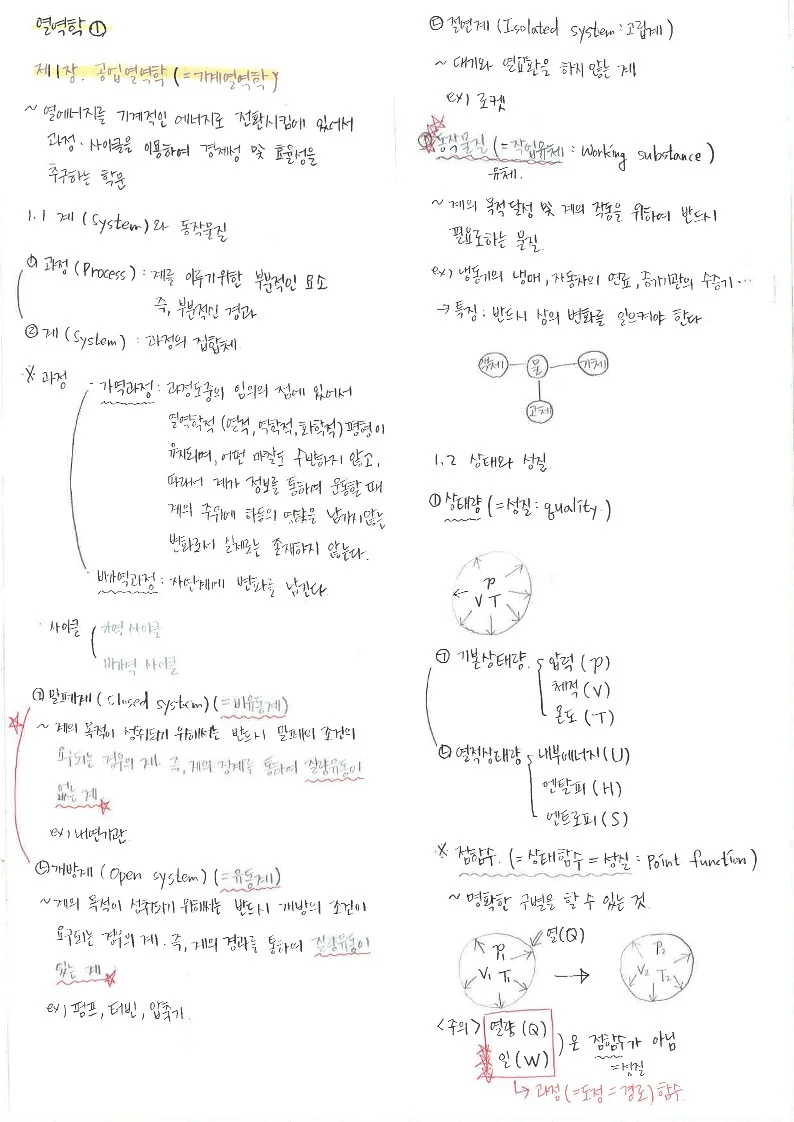 열역학 ①
제1장. 공업열역학 (=기계열역학)
~ 열에너지를 기계적인 에너지로 전환시킴에 있어서
과정·사이클을 이용하여 경제성 및 효율성을
추구하는 학문
1.1 계 (System)와 동작물질
① 과정 (Process) : 계를 이루기위한 부분적인 요소
즉, 부분적인 경과
② 계 (System) : 과정의 집합체
※ 과정
· 가역과정 : 과정도중의 임의의 점에 있어서
열역학적 (열적, 역학적, 화학적) 평형이
유지되며, 어떤 마찰도 수반하지 않고,
따라서 계가 정보를 통하여 운동할 때
계의 주위에 하등의 영향을 남기지않는
변화로서 실제로는 존재하지 않는다.
· 비가역과정 : 자연계에 변화를 남긴다
· 사이클
가역 사이클
비가역 사이클
㉠ 밀폐계 (Closed system) (=비유동계)
~ 계의 목적이 성취되기 위해서는 반드시 밀폐의 조건의
요구되는 경우의 계. 즉, 계의 경계를 통하여 질량유동이
없는 계
ex) 내연기관
㉡ 개방계 (Open system) (=유동계)
~ 계의 목적이 성취되기 위해서는 반드시 개방의 조건이
요구되는 경우의 계. 즉, 계의 경과를 통하여 질량유동이
있는 계
ex) 펌프, 터빈, 압축기
㉢ 절연계 (Isolated system : 고립계)
~ 대기와 열교환을 하지 않는 계
ex) 로켓
동작물질 (=작업유체 : Working substance)
유체.
~ 계의 목적달성 및 계의 작동을 위하여 반드시
필요로하는 물질.
ex) 냉동기의 냉매, 자동차의 연료, 증기기관의 수증기…
→ 특징 : 반드시 상의 변화를 일으켜야 한다
액체 물 기체
고체
1.2 상태와 성질
① 상태량 (=성질 : quality)
P
V T
㉠ 기본상태량
압력 (P)
체적 (V)
온도 (T)
㉡ 열적상태량
내부에너지 (U)
엔탈피 (H)
엔트로피 (S)
※ 점함수. (=상태함수 = 성질 : Point function)
~ 명확한 구별을 할 수 있는 것.
열(Q)
P₁
V₁ T₁
→
P₂
V₂ T₂
<주의> 열량 (Q)
일 (W)
은 점함수가 아님
=성질
↳ 과정 (=도정 = 경로) 함수